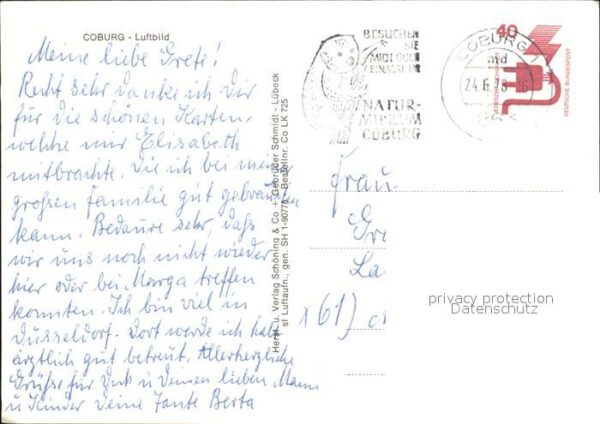 COBURG - Luftbild
Meine liebe Grete!
Recht sehr danke ich Dir
für die schönen Karten,
welche mir Elisabeth
mitbrachte. Die ich bei meiner
großen Familie gut gebrauchen
kann. Bedaure sehr, daß
wir uns noch nicht wieder
hier oder bei Marga treffen
konnten. Ich bin viel in
Düsseldorf. Dort werde ich
ärztlich gut betreut. Allerherzliche
Grüße für Dich u Deinen lieben Mann
u Kinder Deine Tante Berta
Herst. u. Verlag Schöning & Co + Gebrüder Schmidt - Lübeck
sf Luftaufn., gen. SH 1-90778 Bestellnr. Co LK 725
BESUCHEN
SIE
MICH DOCH
EINMAL IM
NATUR-
MUSEUM
COBURG
COBURG 1
md
24.6.
40
DEUTSCHE BUNDESPOST
Frau
Gre
La
61)
privacy protection
Datenschutz